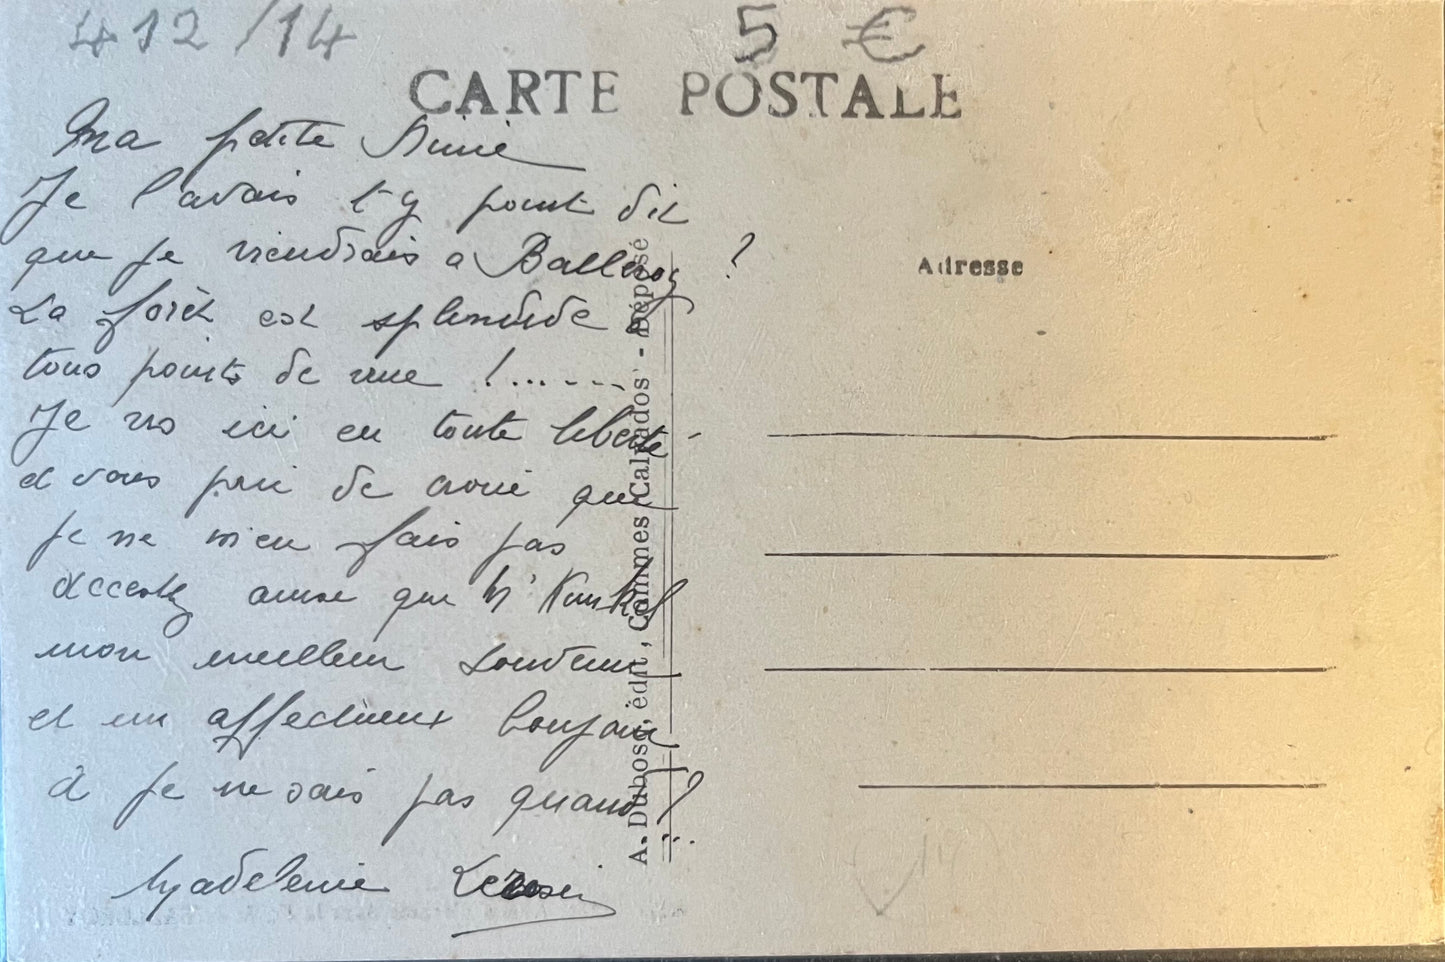 412/14
5 €
CARTE POSTALE
Ma petite Ninie
Je l'avais t-y point dit
que je viendrais a Balleroy ?
La forêt est splendide a
tous points de vue !......
Je vis ici en toute liberté
et vous prie de croire que
je ne m'en fais pas
Acceptez ainsi que Mr Kunkel
mon meilleur souvenir
et un affectueux bonjour
à je ne sais pas quand ?...
Madeleine
A. Dubosq, édit, Commes (Calvados) - Déposé
Adresse